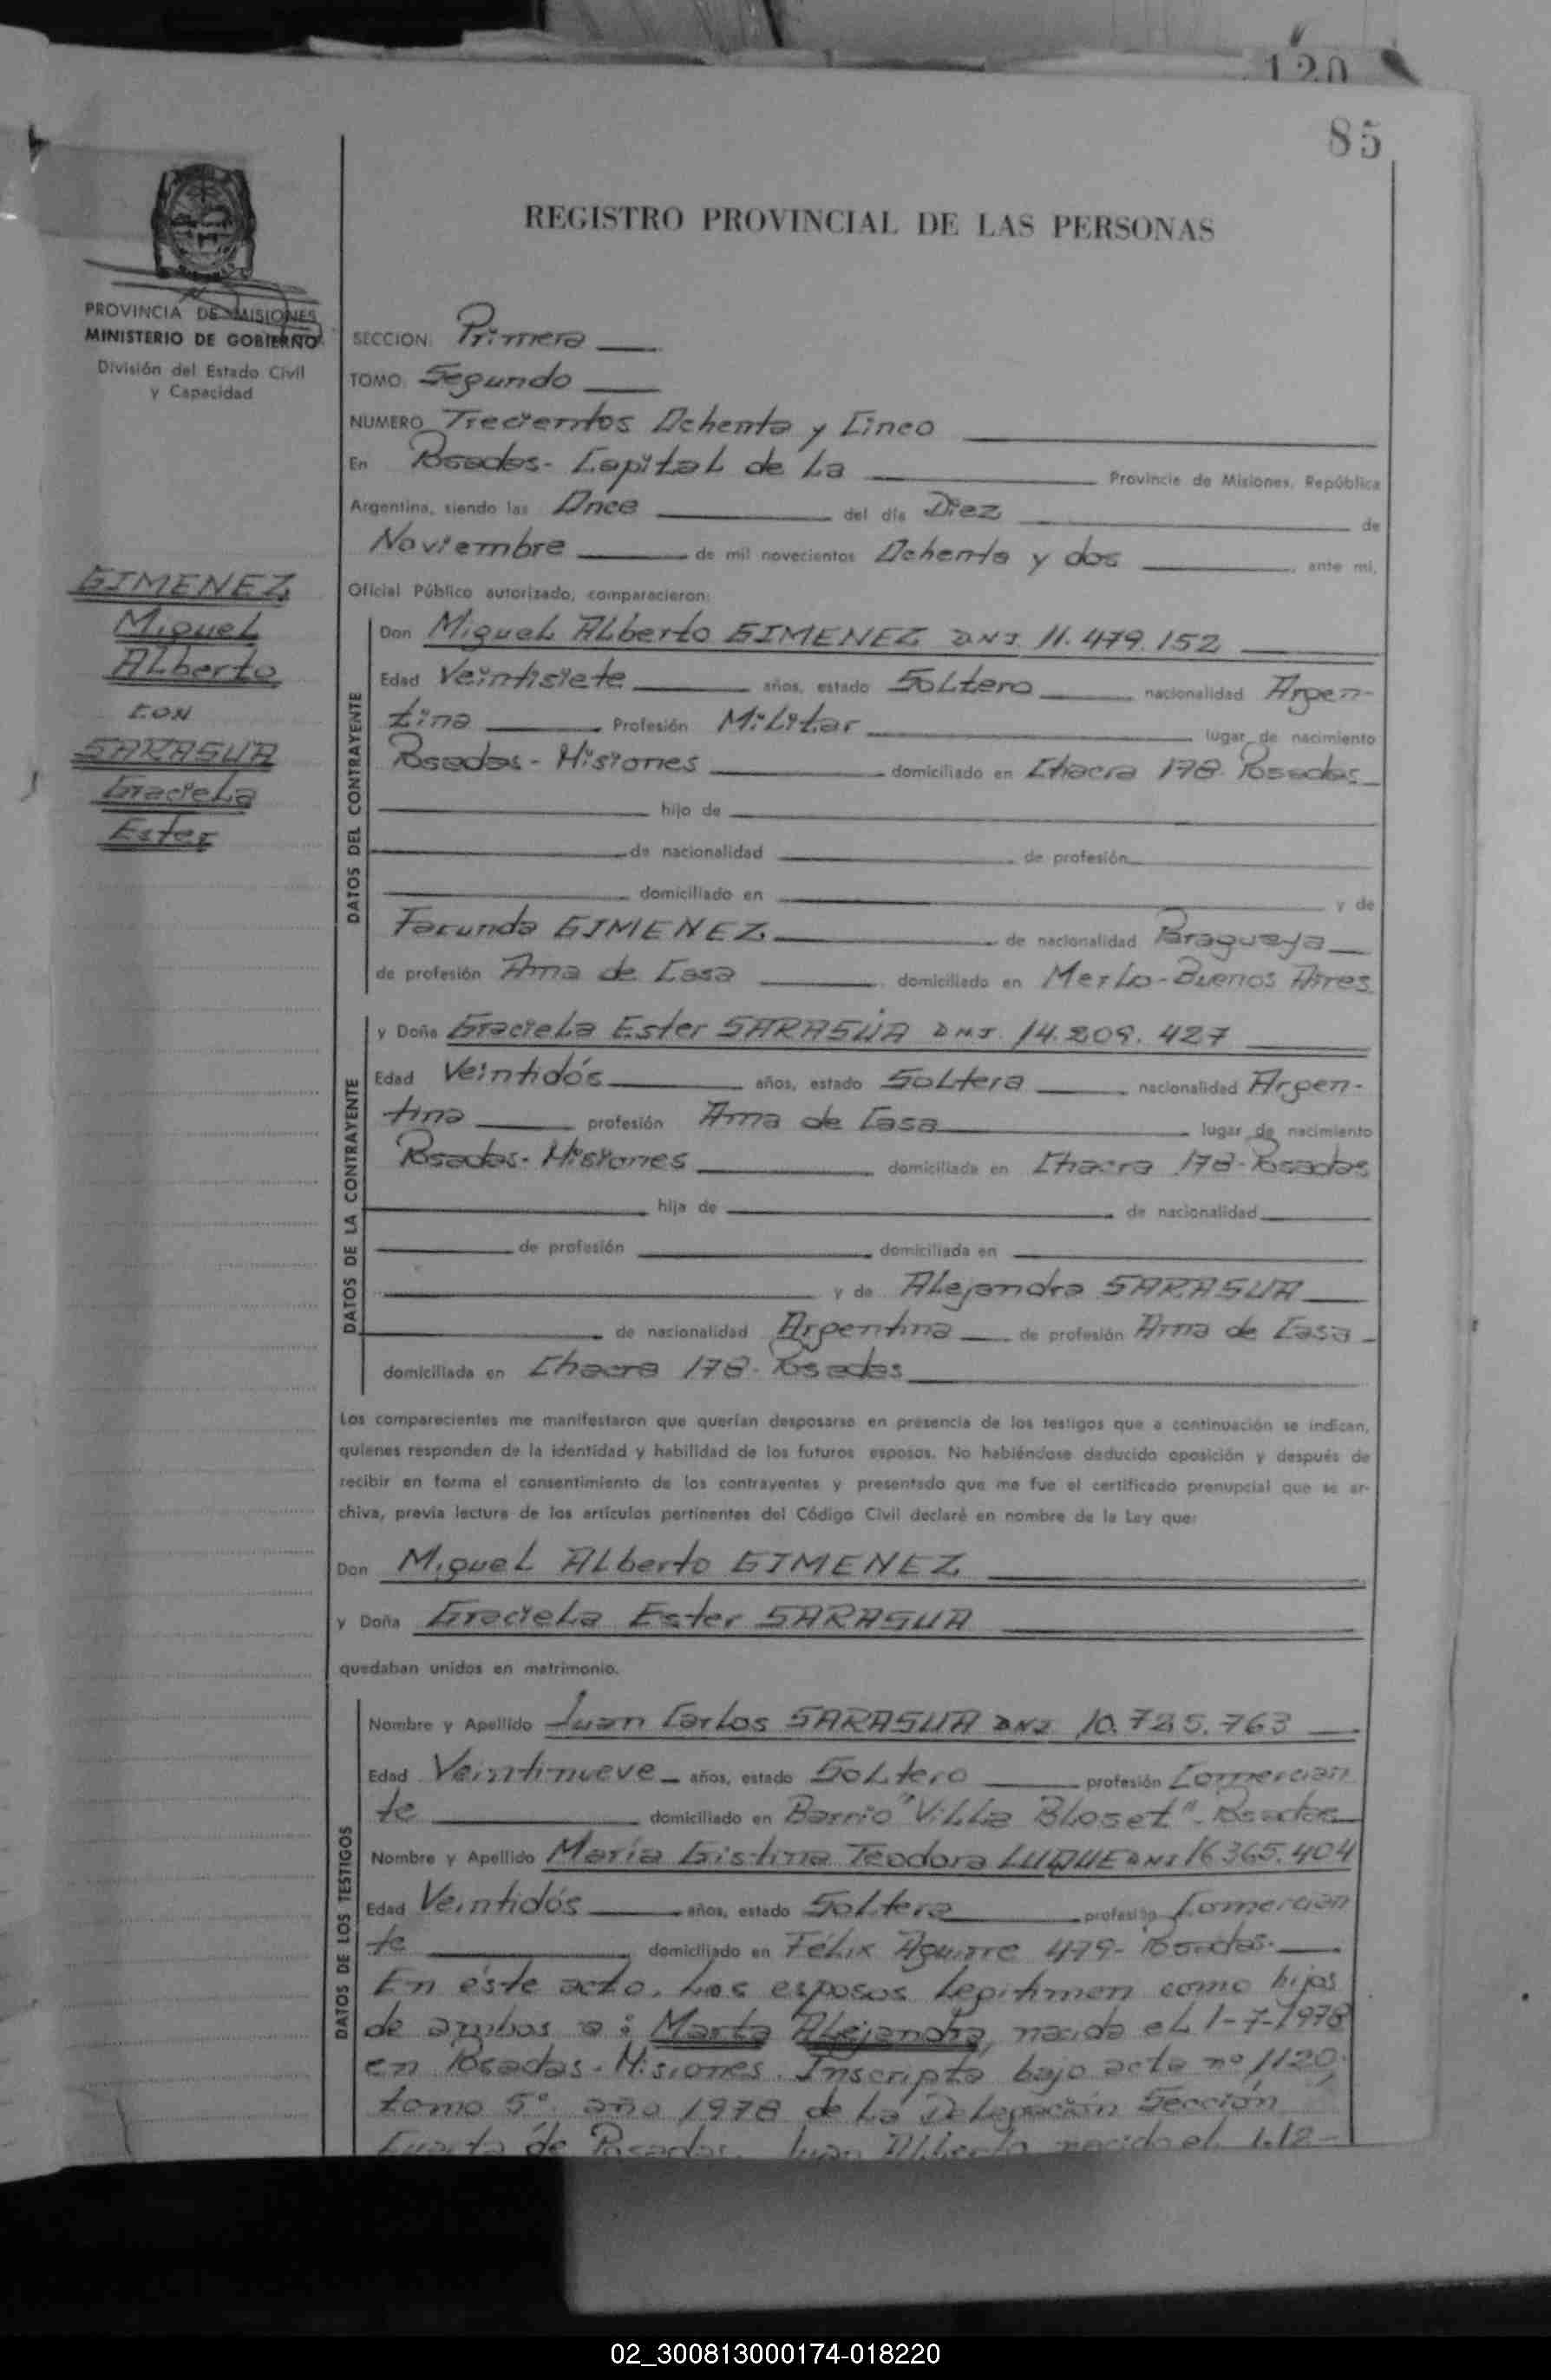 120
85
REGISTRO PROVINCIAL DE LAS PERSONAS
PROVINCIA DE MISIONES
MINISTERIO DE GOBIERNO
División del Estado Civil
y Capacidad
GIMENEZ
Miguel
Alberto
CON
SARASUA
Graciela
Ester
SECCION: Primera
TOMO: Segundo
NUMERO Trecientos Ochenta y Cinco
En Posadas - Capital de La Provincia de Misiones, República
Argentina, siendo las Once del día Diez de
Noviembre de mil novecientos Ochenta y dos ante mí,
Oficial Público autorizado, comparecieron:
DATOS DEL CONTRAYENTE
Don Miguel Alberto GIMENEZ DNI. 11.479.152
Edad Veintisiete años, estado Soltero nacionalidad Argen-
tina Profesión Militar lugar de nacimiento
Posadas - Misiones domiciliado en Chacra 178 - Posadas
hijo de
de nacionalidad de profesión
domiciliado en y de
Facunda GIMENEZ de nacionalidad Paraguaya
de profesión Ama de Casa domiciliada en Merlo - Buenos Aires
DATOS DE LA CONTRAYENTE
y Doña Graciela Ester SARASUA DNI. 14.209.427
Edad Veintidós años, estado Soltera nacionalidad Argen-
tina profesión Ama de Casa lugar de nacimiento
Posadas - Misiones domiciliada en Chacra 178 - Posadas
hija de de nacionalidad
de profesión domiciliada en
y de Alejandra SARASUA
de nacionalidad Argentina de profesión Ama de Casa
domiciliada en Chacra 178 - Posadas
Los comparecientes me manifestaron que querían desposarse en presencia de los testigos que a continuación se indican,
quienes responden de la identidad y habilidad de los futuros esposos. No habiéndose deducido oposición y después de
recibir en forma el consentimiento de los contrayentes y presentado que me fue el certificado prenupcial que se ar-
chiva, previa lectura de los artículos pertinentes del Código Civil declaré en nombre de la Ley que:
Don Miguel Alberto GIMENEZ
y Doña Graciela Ester SARASUA
quedaban unidos en matrimonio.
DATOS DE LOS TESTIGOS
Nombre y Apellido Juan Carlos SARASUA DNI 10.725.763
Edad Veintinueve años, estado Soltero profesión Comercian
te domiciliado en Barrio "Villa Bloset" - Posadas
Nombre y Apellido María Cristina Teodora LUQUE DNI 16365.404
Edad Veintidós años, estado Soltera profesión Comercian
te domiciliado en Félix Aguirre 479 - Posadas.
En éste acto. Los esposos Legitiman como hijos
de ambos a: Marta Alejandra, nacida el 1-7-1978
en Posadas - Misiones. Inscripta bajo acta nº 1120,
tomo 5º año 1978 de La Delegación Sección
Cuarta de Posadas. Juan Alberto nacido el 1.12-
02_300813000174-018220